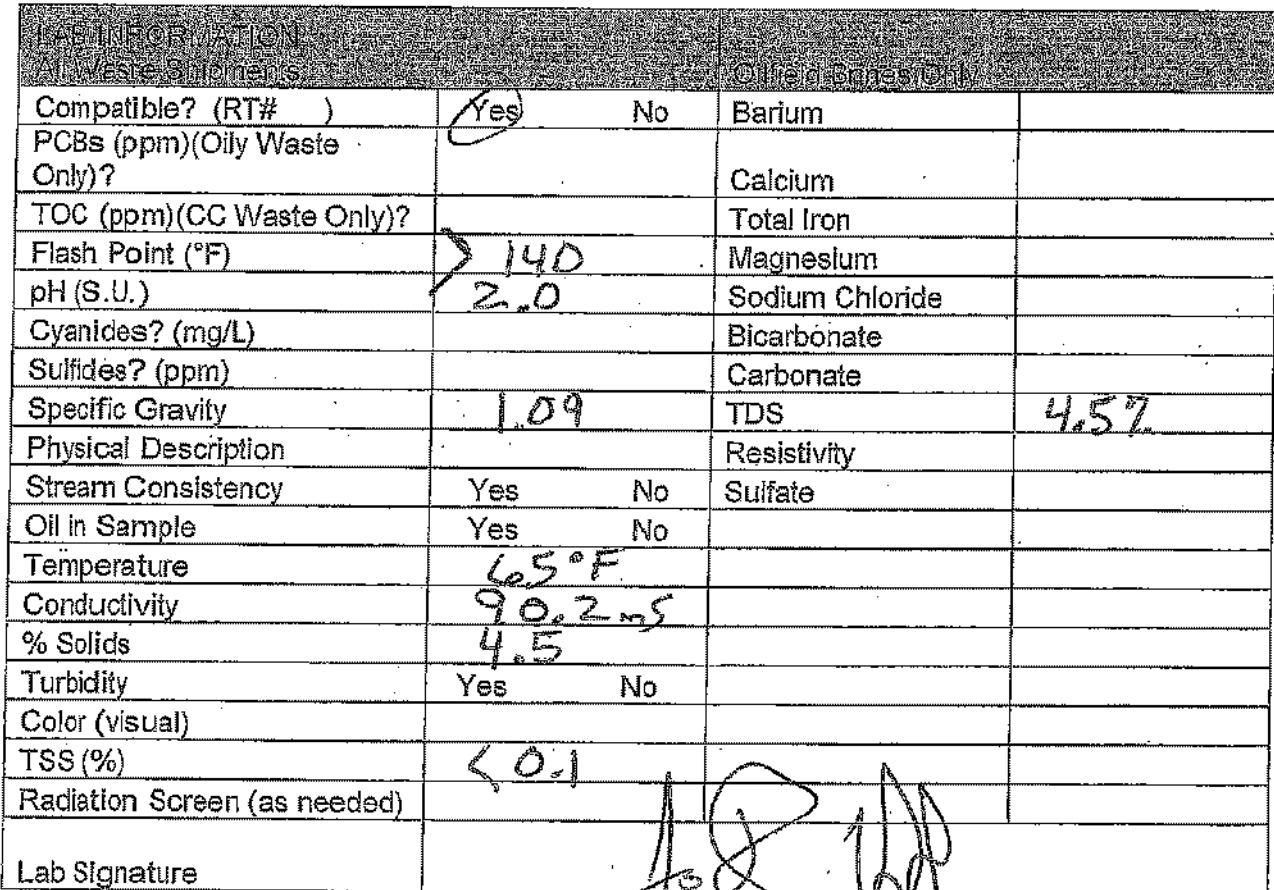 LAB INFORMATION
All Waste Shipments Oilfield Brines Only
Compatible? (RT# ) Yes No Barium
PCBs (ppm)(Oily Waste
Only)? Calcium
TOC (ppm)(CC Waste Only)? Total Iron
Flash Point (°F) > 140 Magnesium
pH (S.U.) 2.0 Sodium Chloride
Cyanides? (mg/L) Bicarbonate
Sulfides? (ppm) Carbonate
Specific Gravity 1.09 TDS 4.5%
Physical Description Resistivity
Stream Consistency Yes No Sulfate
Oil in Sample Yes No
Temperature 65°F
Conductivity 90.2 mS
% Solids 4.5
Turbidity Yes No
Color (visual)
TSS (%) < 0.1
Radiation Screen (as needed)
Lab Signature